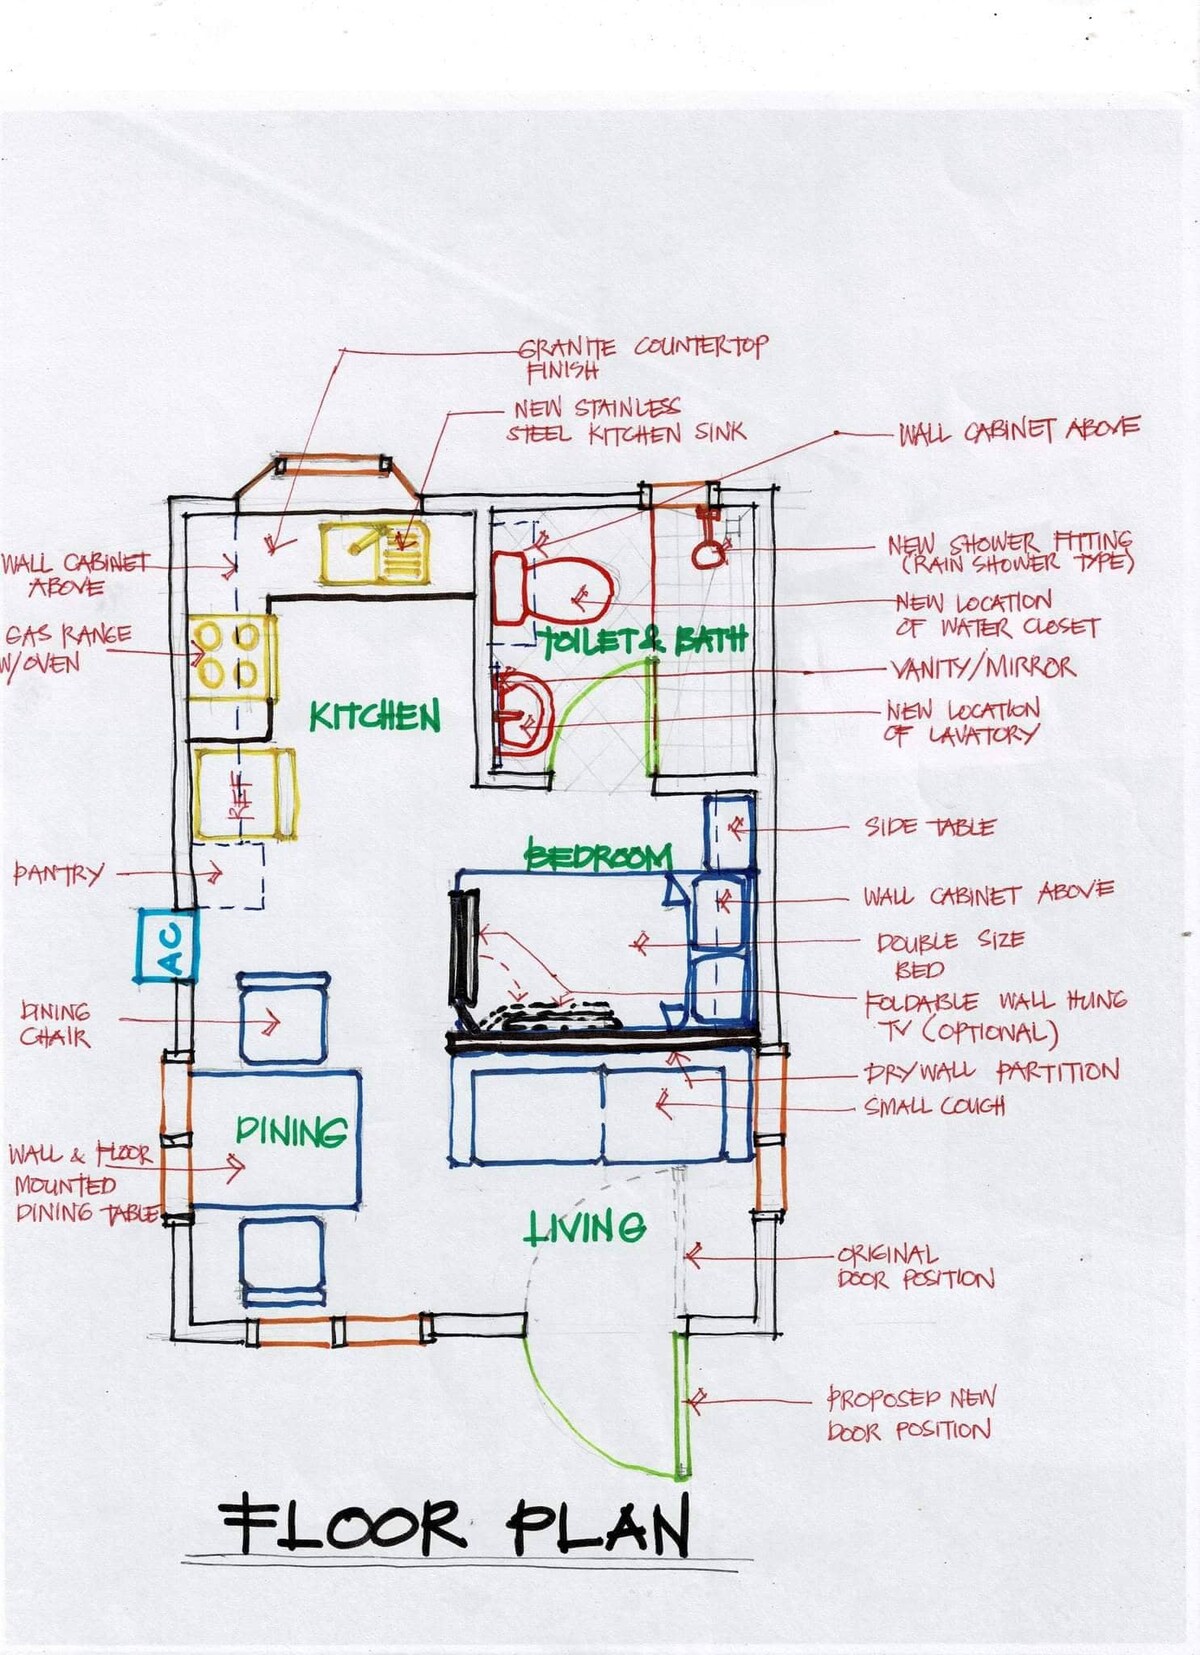 GRANITE COUNTERTOP
FINISH
NEW STAINLESS
STEEL KITCHEN SINK
WALL CABINET ABOVE
WALL CABINET
ABOVE
NEW SHOWER FITTING
(RAIN SHOWER TYPE)
GAS RANGE
W/OVEN
NEW LOCATION
OF WATER CLOSET
TOILET & BATH
VANITY/MIRROR
KITCHEN
NEW LOCATION
OF LAVATORY
REF
SIDE TABLE
BEDROOM
PANTRY
WALL CABINET ABOVE
AC
DOUBLE SIZE
BED
DINING
CHAIR
FOLDABLE WALL HUNG
TV (OPTIONAL)
DRYWALL PARTITION
SMALL COUGH
DINING
WALL & FLOOR
MOUNTED
DINING TABLE
LIVING
ORIGINAL
DOOR POSITION
PROPOSED NEW
DOOR POSITION
FLOOR PLAN